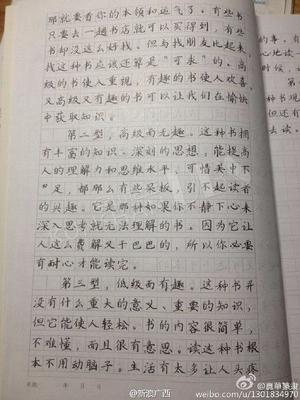 那就要看你的本领和运气了。有些书
只要去一趟书店就可以买得到，有些
书却没这么好找。但与找朋友比起来
找这种书应该还算是“可求”的。高
级的书使人重视，有趣的书使人欢喜，
又高级又有趣的书可以让我们在愉快
中获取知识。
第二型，高级而无趣。这种书拥
有丰富的知识、深刻的思想，能提高
人的理解力和思维水平，可惜美中不
足，都那么有些呆板，引不起读者
的兴趣。它是那种如果你不静下心来
深入思考就无法理解的书。因为它让
人这么费解又干巴巴的，所以你必要
有耐心才能读完。
第三型，低级而有趣。这种书并
没有什么重大的意义、重要的知识，
但它能使人轻松。书的内容很简单，
不难懂，而且很有意思。读这种书根
本不用动脑子。生活有太多让人头疼
年 月 日
@新浪广西
weibo.com/u/1301834970